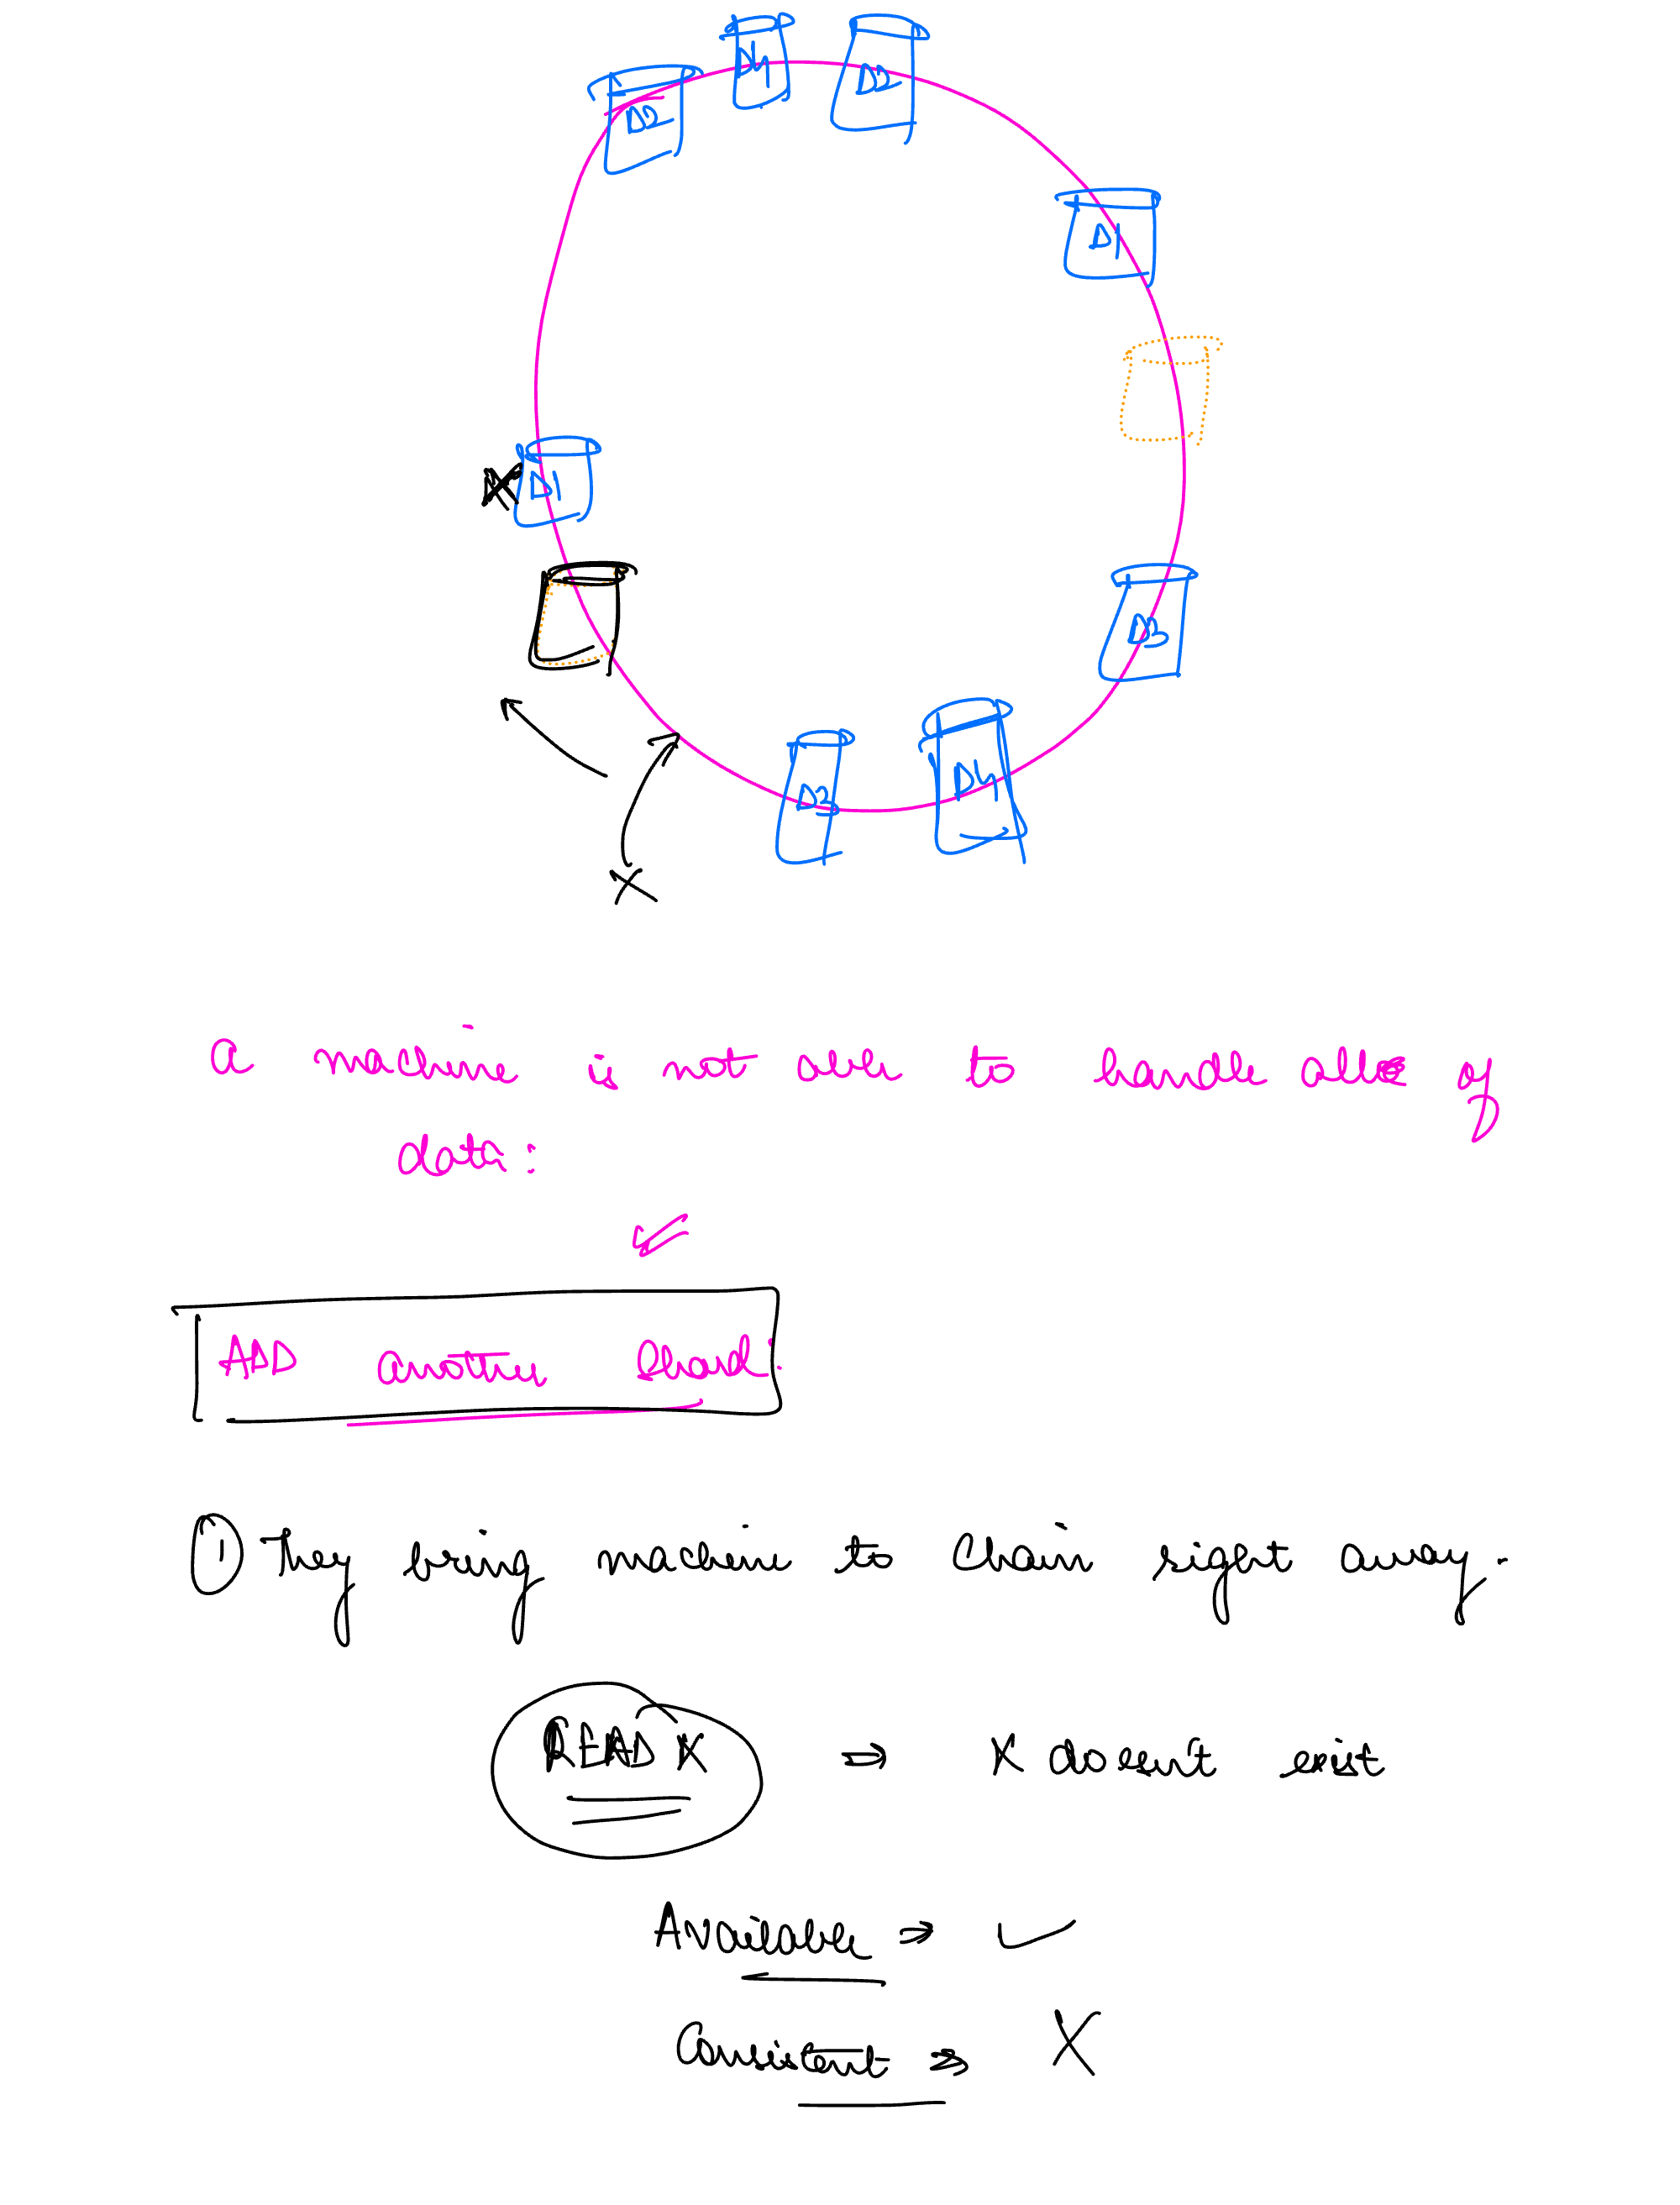 D4
D2
D2
D1
D1
X
D3
D4
D3
X
a machine is not able to handle all of
data:
ADD another Shard:
1 They bring machine to Chain right away.
READ X ⇒ X doesn't exist
Available ⇒ ✓
Consistent ⇒ X